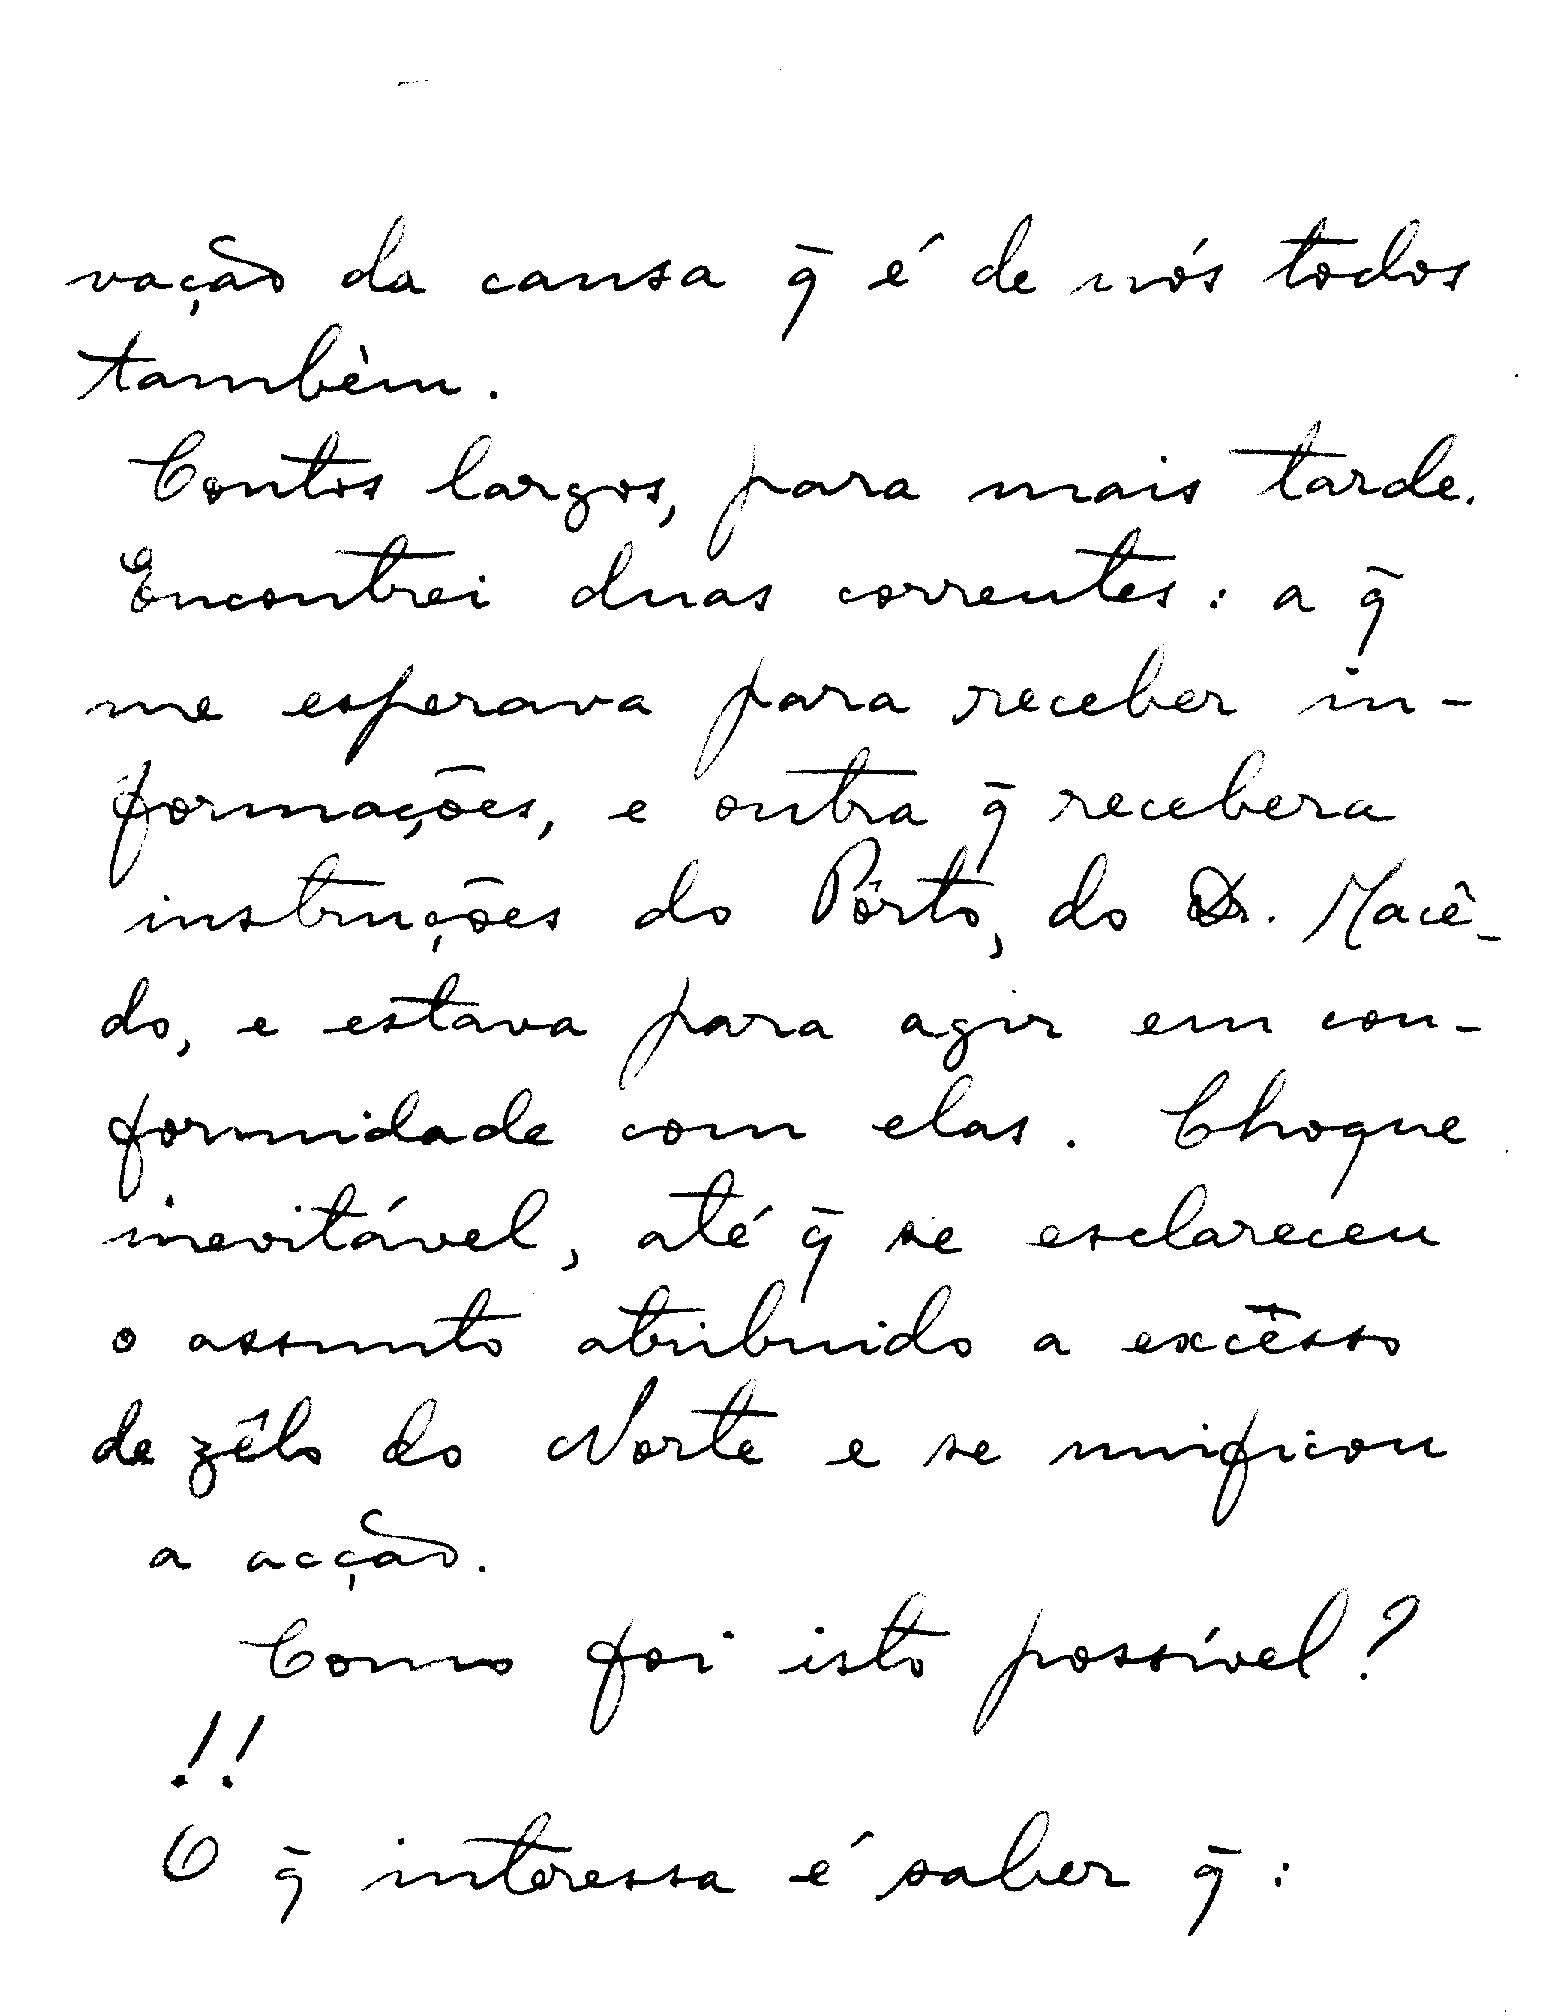 vação da causa q̄ é de nós todos
tambèm.
Contos largos, para mais tarde.
Encontrei duas correntes: a q̄
me esperava para receber in-
formações, e outra q̄ recebera
instruções do Pôrto, do Dr. Macê-
do, e estava para agir em con-
formidade com elas. Choque
inevitável, até q̄ se esclareceu
o assunto atribuido a excêsso
de zêlo do Norte e se unificou
a acção.
Como foi isto possível?
!!
O q̄ interessa é saber q̄: